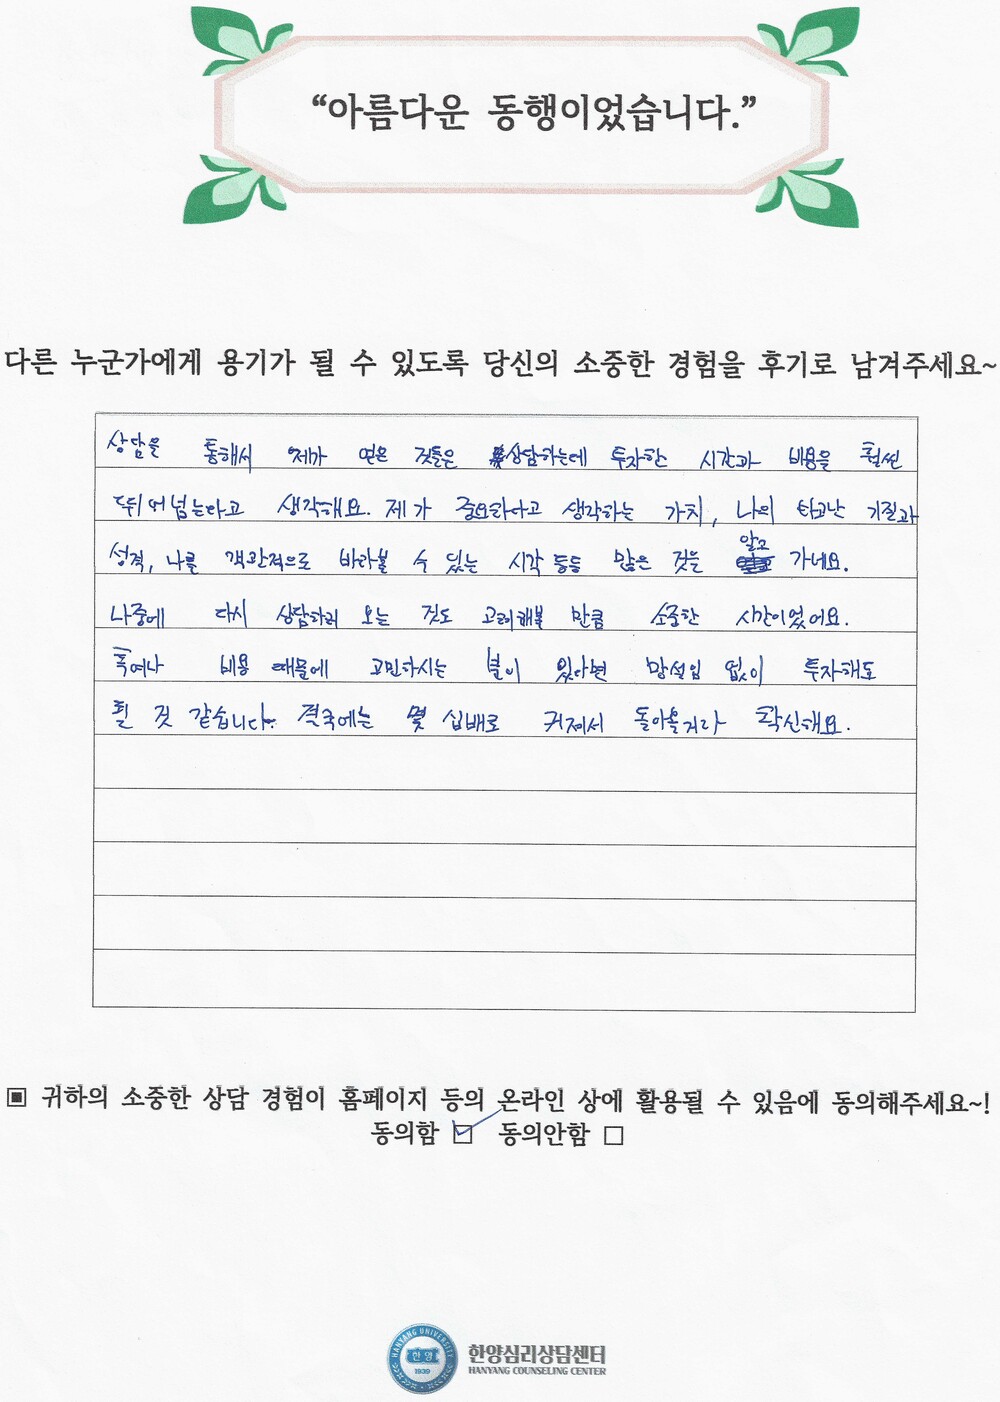 “아름다운 동행이었습니다.”
다른 누군가에게 용기가 될 수 있도록 당신의 소중한 경험을 후기로 남겨주세요~
상담을 통해서 제가 얻은 것들은 상담하는데 투자한 시간과 비용을 훨씬
뛰어넘는다고 생각해요. 제가 중요하다고 생각하는 가치, 나의 타고난 기질과
성격, 나를 객관적으로 바라볼 수 있는 시각 등등 많은 것을 알고 가네요.
나중에 다시 상담하러 오는 것도 고려해볼 만큼 소중한 시간이었어요.
혹여나 비용 때문에 고민하시는 분이 있다면 망설임 없이 투자해도
될 것 같습니다. 결국에는 몇 십배로 커져서 돌아올거라 확신해요.
▣ 귀하의 소중한 상담 경험이 홈페이지 등의 온라인 상에 활용될 수 있음에 동의해주세요~!
동의함 ☑ 동의안함 □
HANYANG UNIVERSITY
한양
1939
한양심리상담센터
HANYANG COUNSELING CENTER